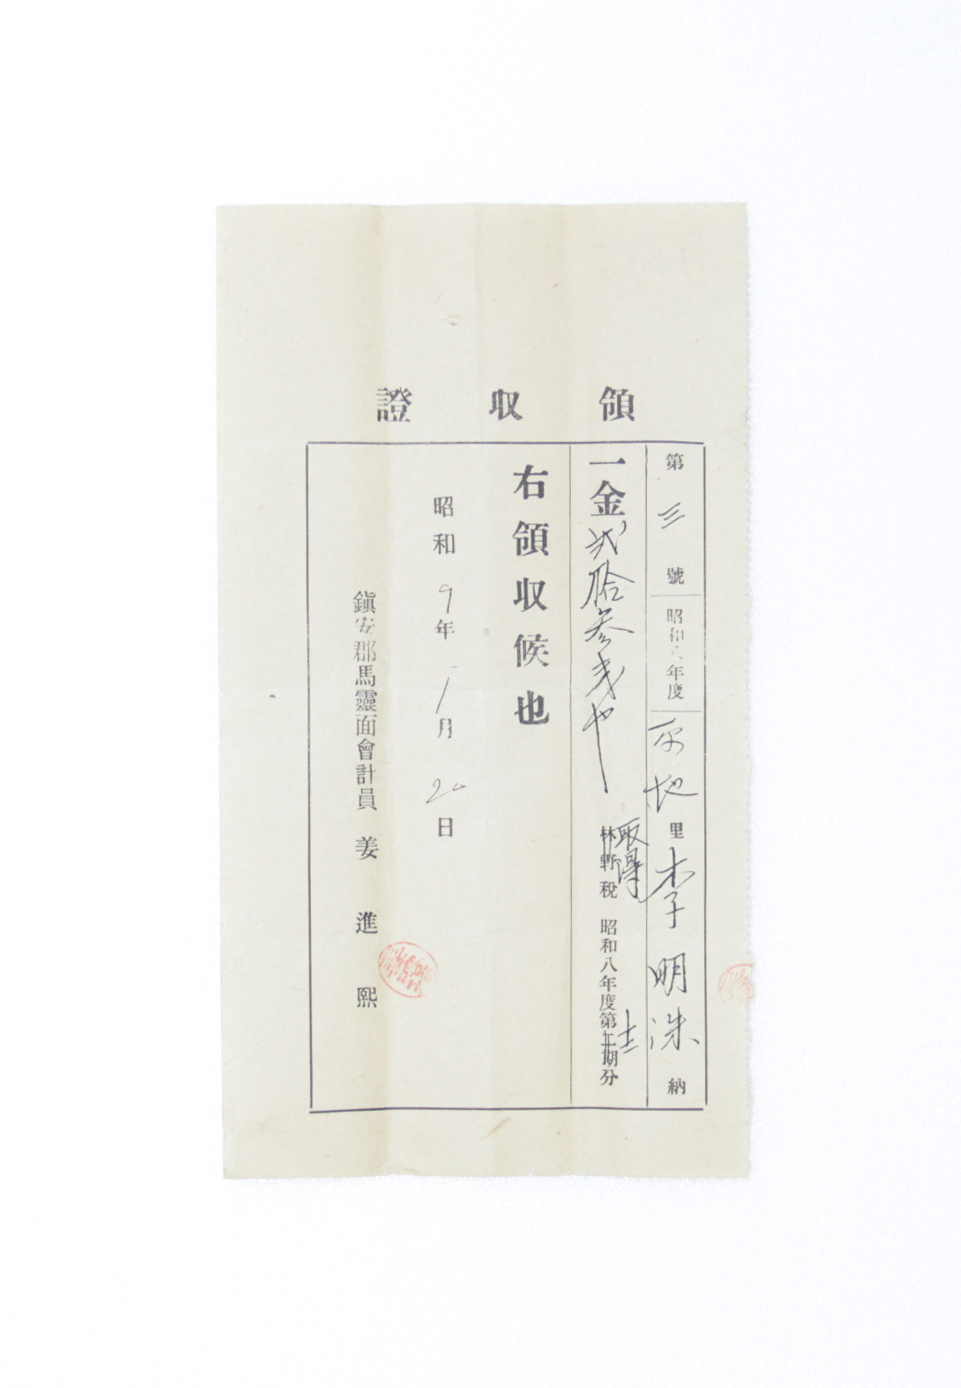 領收證
第三號 昭和八年度 平地里 李明洙 納
一金貳拾參戔也 取得 林野稅 昭和八年度第十二期分
右領収候也
昭和9年1月20日
鎭安郡馬靈面會計員 姜進熙